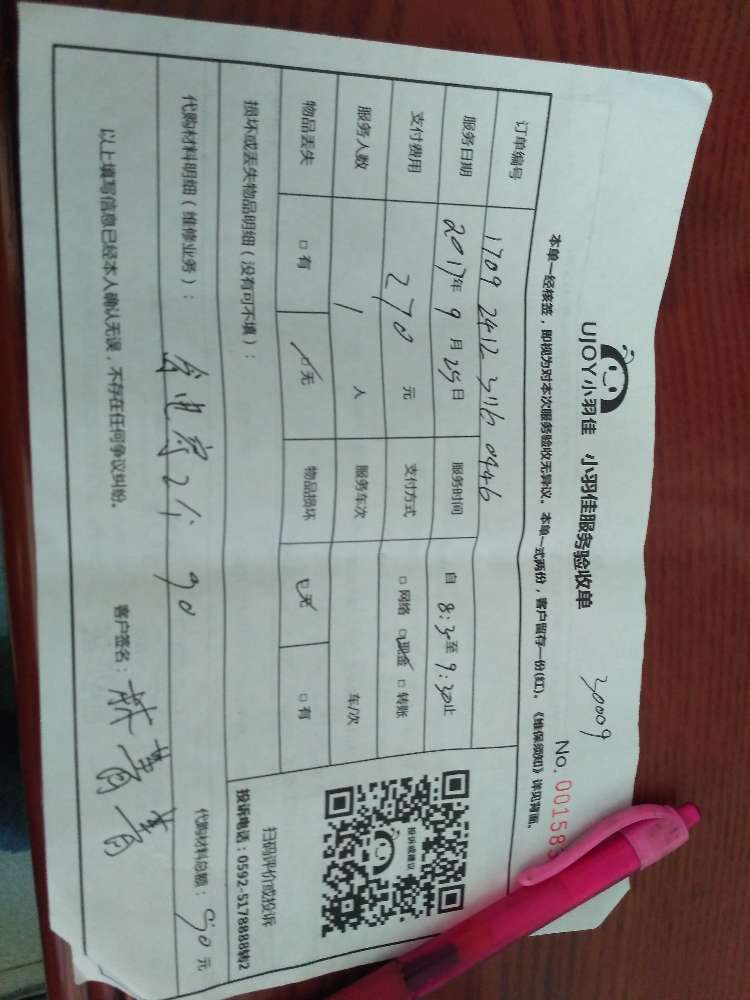 UJOY小羽佳 小羽佳服务验收单
30009
No. 001583
本单一经核签，即视为对本次服务验收无异议。本单一式两份，客户留存一份(红)。《维保须知》详见背面。
订单编号 1709 2412 3116 0446
服务日期 2017年 9 月 25日 服务时间 自 8:30至 9:30止
支付费用 270 元 支付方式 □ 网络 ☑ 现金 □ 转账
服务人数 1 人 服务车次 车/次
物品丢失 □ 有 ☑ 无 物品损坏 ☑ 无 □ 有
损坏或丢失物品明细（没有可不填）：
投诉或建议
扫码评价或投诉
投诉电话：0592-5178888转2
代购材料明细（维修业务）： 2个 90 代购材料总额： 90 元
以上填写信息已经本人确认无误，不存在任何争议纠纷。 客户签名：